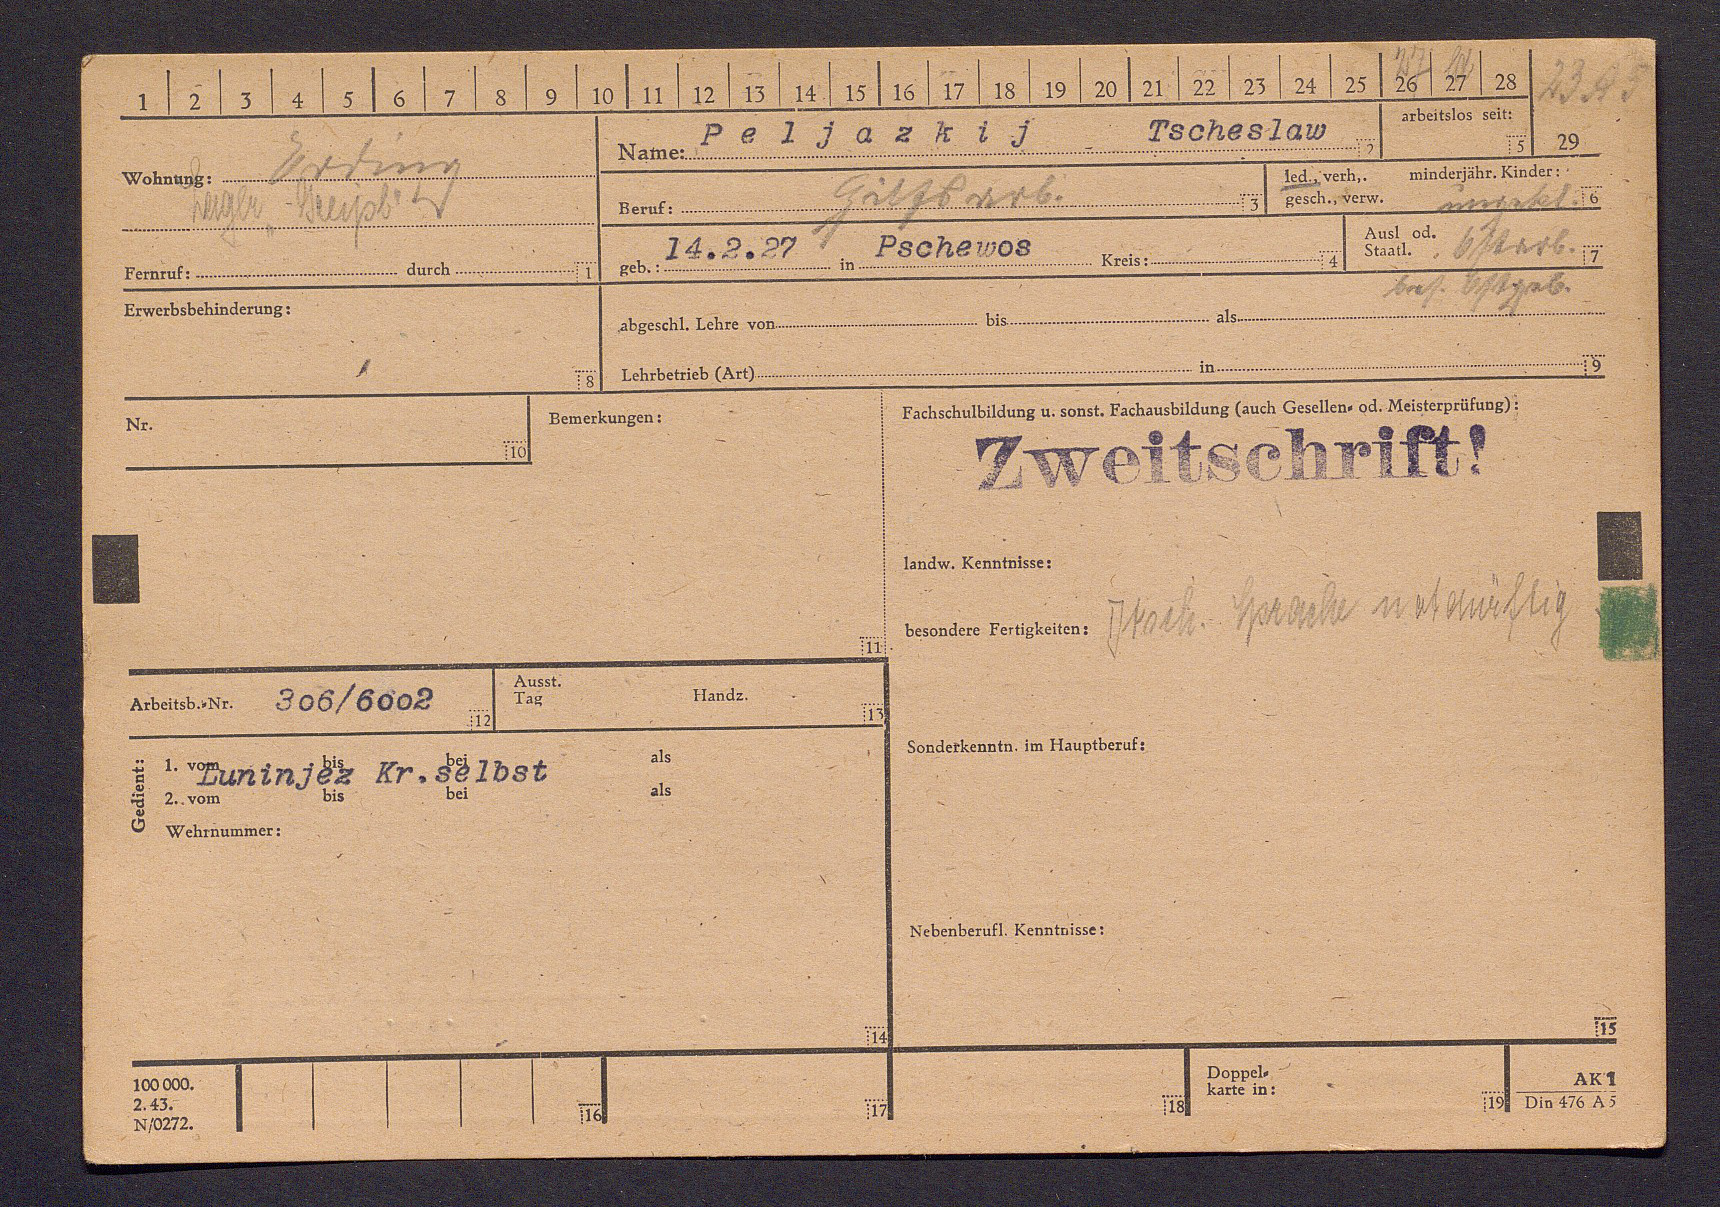 1 2 3 4 5 6 7 8 9 10 11 12 13 14 15 16 17 18 19 20 21 22 23 24 25 26 27 28
29
arbeitslos seit: 5
Name: Peljazkij Tscheslaw 2
Wohnung: Erding
Beruf: Hilfsarb. 3
led., verh,. minderjähr. Kinder:
gesch., verw. 6
geb.: 14.2.27 in Pschewos Kreis: 4
Ausl od.
Staatl. Ostarb. 7
bes. Ostgeb.
Fernruf: durch 1
Erwerbsbehinderung:
8
abgeschl. Lehre von bis als
Lehrbetrieb (Art) in 9
Nr.
10
Bemerkungen:
11
Fachschulbildung u. sonst. Fachausbildung (auch Gesellen- od. Meisterprüfung):
Zweitschrift!
landw. Kenntnisse:
besondere Fertigkeiten: Dtsch. Sprache notdürftig
Arbeitsb.-Nr. 306/6002 12
Ausst.
Tag Handz. 13
Sonderkenntn. im Hauptberuf:
Gedient:
1. vom bis bei als
Luninjez Kr.selbst
2. vom bis bei als
Wehrnummer:
14
Nebenberufl. Kenntnisse:
15
100 000.
2. 43.
N/0272.
16
17
18
Doppel-
karte in: 19
AK 1
Din 476 A 5